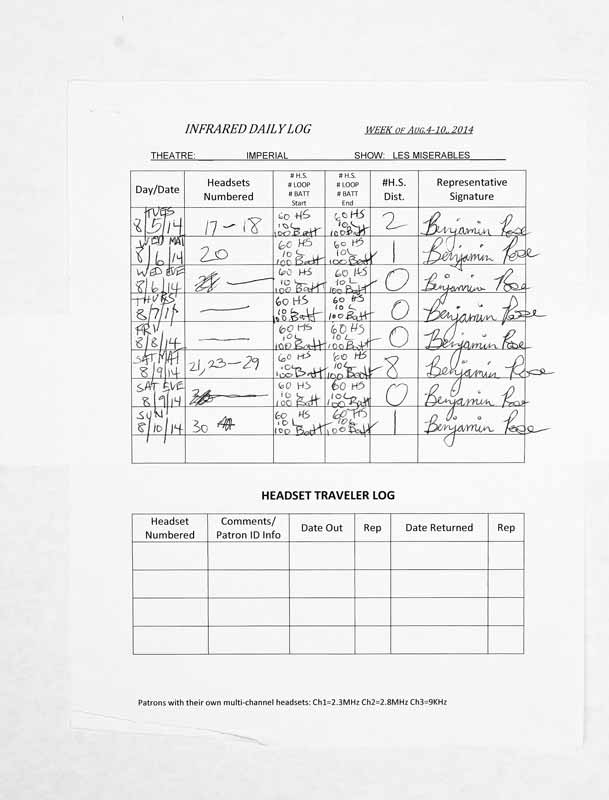 INFRARED DAILY LOG WEEK OF AUG.4-10, 2014
THEATRE: IMPERIAL SHOW: LES MISERABLES
Day/Date Headsets Numbered # H.S. # LOOP # BATT Start # H.S. # LOOP # BATT End #H.S. Dist. Representative Signature
TUES 8/5/14 17-18 60 HS 10L 100 Batt 60 HS 10L 100 Batt 2 Benjamin Rose
WED MAT 8/6/14 20 60 HS 10L 100 Batt 60 HS 10L 100 Batt 1 Benjamin Rose
WED EVE 8/6/14 — 60 HS 10L 100 Batt 60 HS 10L 100 Batt 0 Benjamin Rose
THURS 8/7/14 — 60 HS 10L 100 Batt 60 HS 10L 100 Batt 0 Benjamin Rose
FRI 8/8/14 — 60 HS 10L 100 Batt 60 HS 10L 100 Batt 0 Benjamin Rose
SAT MAT 8/9/14 21, 23-29 60 HS 10L 100 Batt 60 HS 10L 100 Batt 8 Benjamin Rose
SAT EVE 8/9/14 — 60 HS 10L 100 Batt 60 HS 10L 100 Batt 0 Benjamin Rose
SUN 8/10/14 30 60 HS 10L 100 Batt 60 HS 10L 100 Batt 1 Benjamin Rose
HEADSET TRAVELER LOG
Headset Numbered Comments/ Patron ID Info Date Out Rep Date Returned Rep
Patrons with their own multi-channel headsets: Ch1=2.3MHz Ch2=2.8MHz Ch3=9KHz